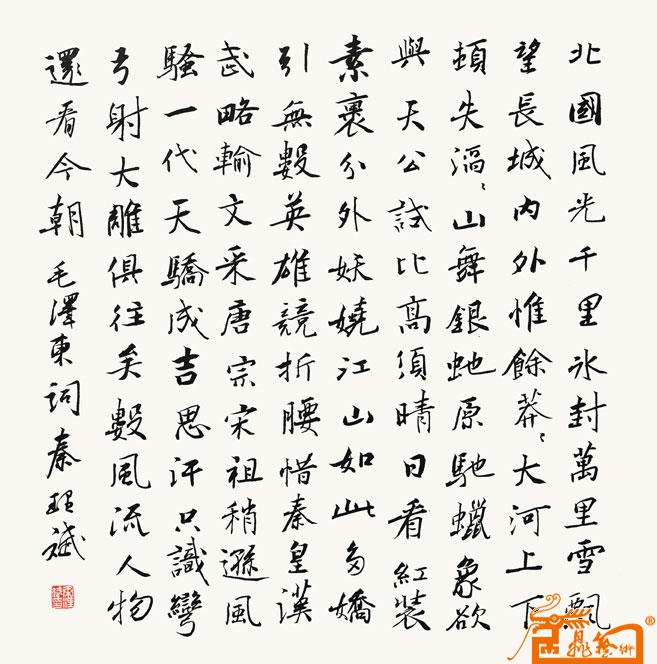 北國風光千里冰封萬里雪飄
望長城内外惟餘莽〻大河上下
頓失滔〻山舞銀虵原馳蠟象欲
與天公試比高須晴日看紅裝
素裹分外妖嬈江山如此多嬌
引無數英雄競折腰惜秦皇漢
武略輸文采唐宗宋祖稍遜風
騷一代天驕成吉思汗只識彎
弓射大雕俱往矣數風流人物
還看今朝毛澤東詞秦理斌
鼎藝術®